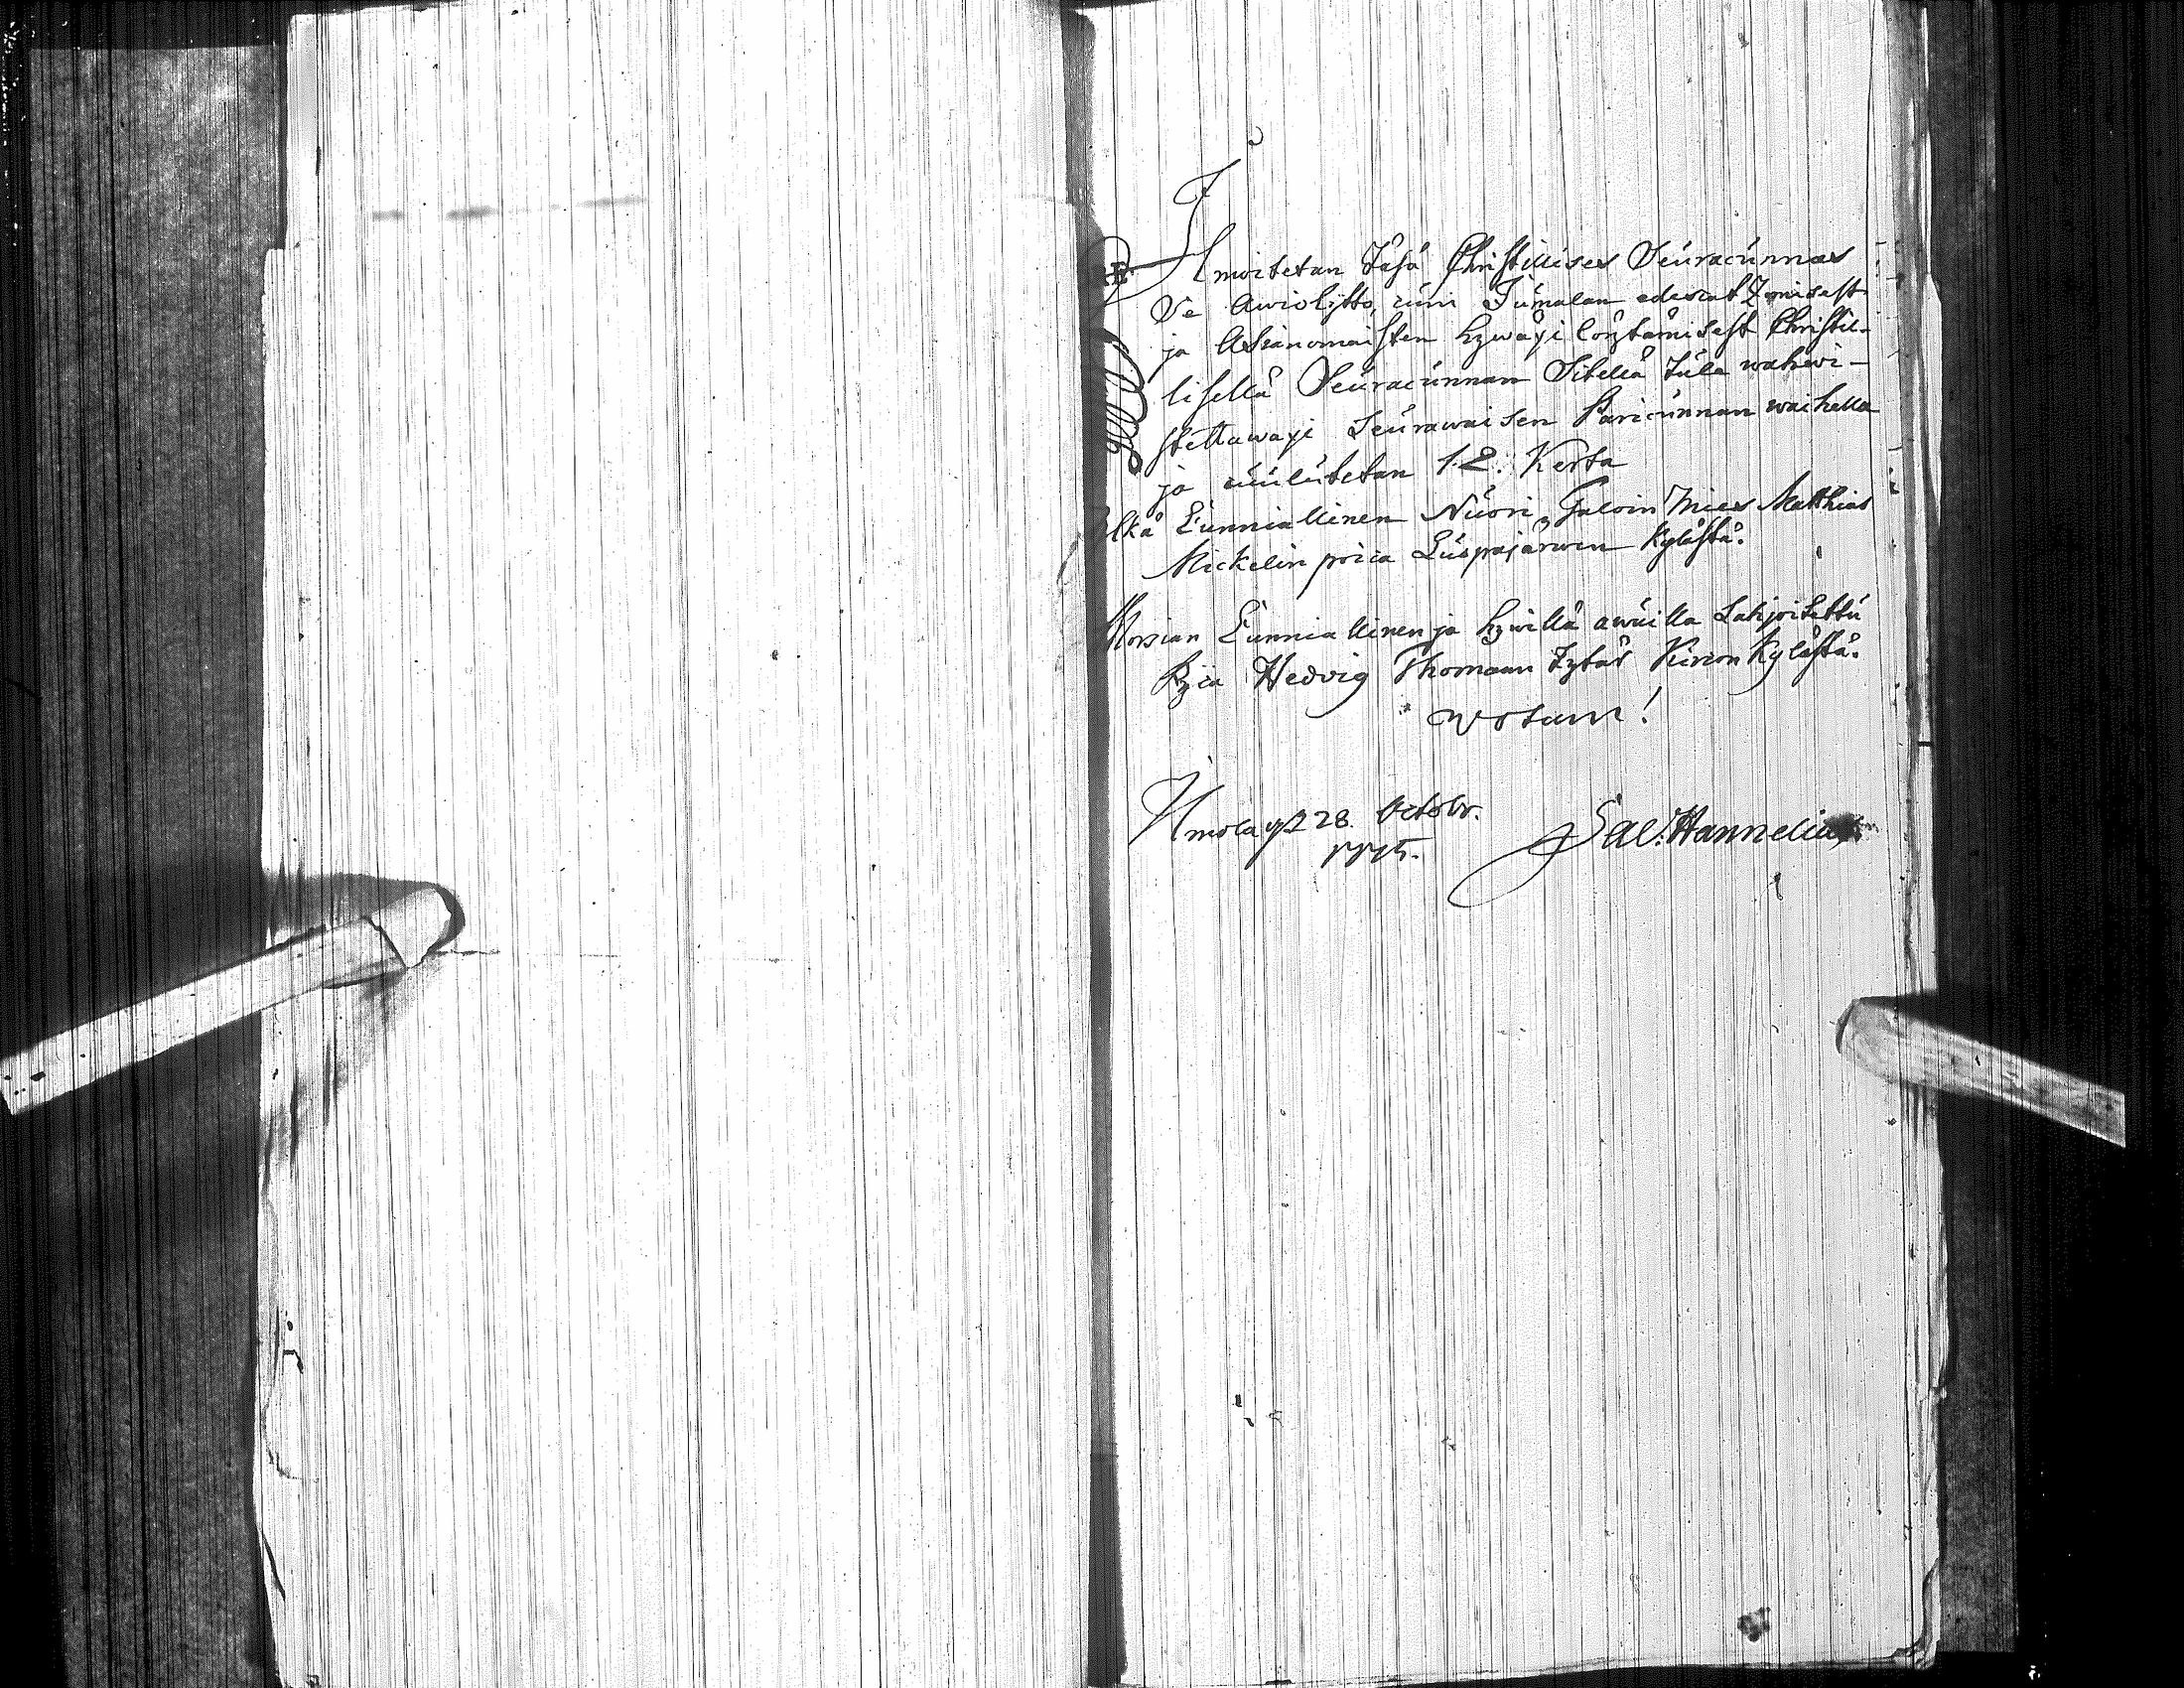 Ilmoitetan täsä Christillises Seuracunnas
Se Awioliitto, cuin Jumalan edescatzomisest
ja Asianomaisten hywäxi löytämisest Christil-
lisellä Seuracunnan Sitellä tule wahwi-
stettawaxi Seurawaisen Paricunnan waihella
ja cuulutetan 1. 2. Kerta
Ylkä Cunniallinen Nuori Taloin Mies Matthias
Mickelin poica Luspajärwen Kylästä.
Morsian Cunniallinen ja hywillä awuilla Lahjoitettu
Pijca Hedvig Thomaan Tytär Kircon Kylästä.
Votum!
28. Octobr.
Sal: Hannelius